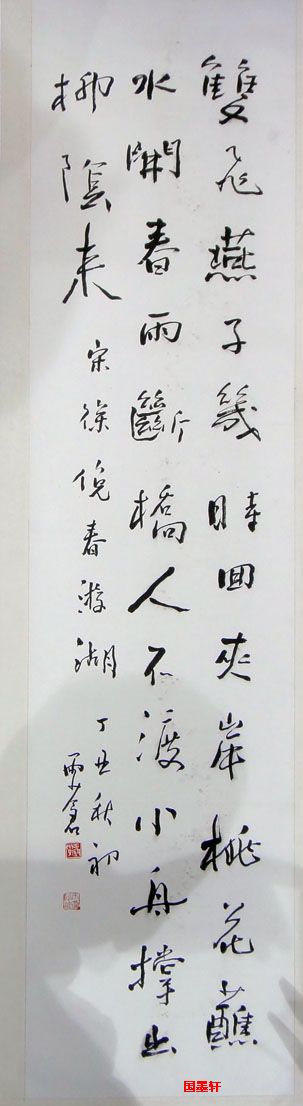 雙飛燕子幾時回夾岸桃花蘸
水開春雨斷橋人不渡小舟撐出
柳陰來
宋徐俛春游湖
丁丑秋初
国墨轩